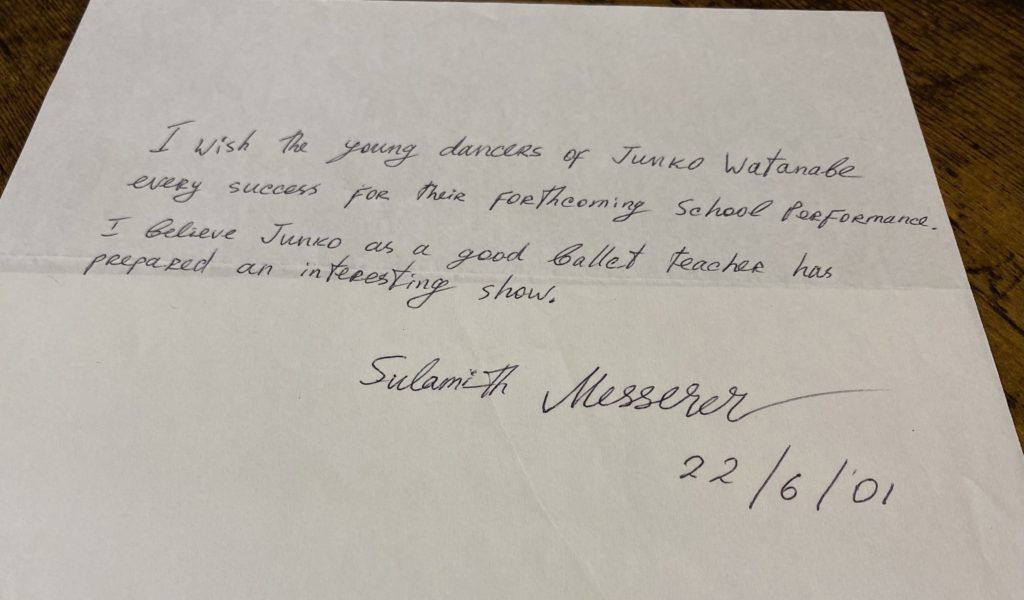 I wish the young dancers of Junko Watanabe
every success for their forthcoming School Performance.
I believe Junko as a good ballet teacher has
prepared an interesting show.
Sulamith Messerer
22/6/'01